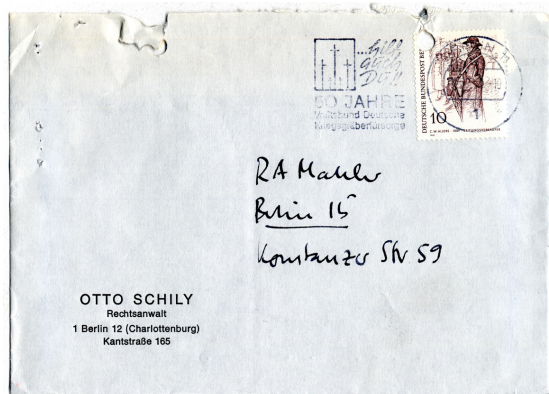 ...hilf
auch
Du!
50 JAHRE
Volksbund Deutsche
Kriegsgräberfürsorge
DEUTSCHE BUNDESPOST BERLIN
10
RA Mahler
Berlin 15
Konstanzer Str 59
OTTO SCHILY
Rechtsanwalt
1 Berlin 12 (Charlottenburg)
Kantstraße 165